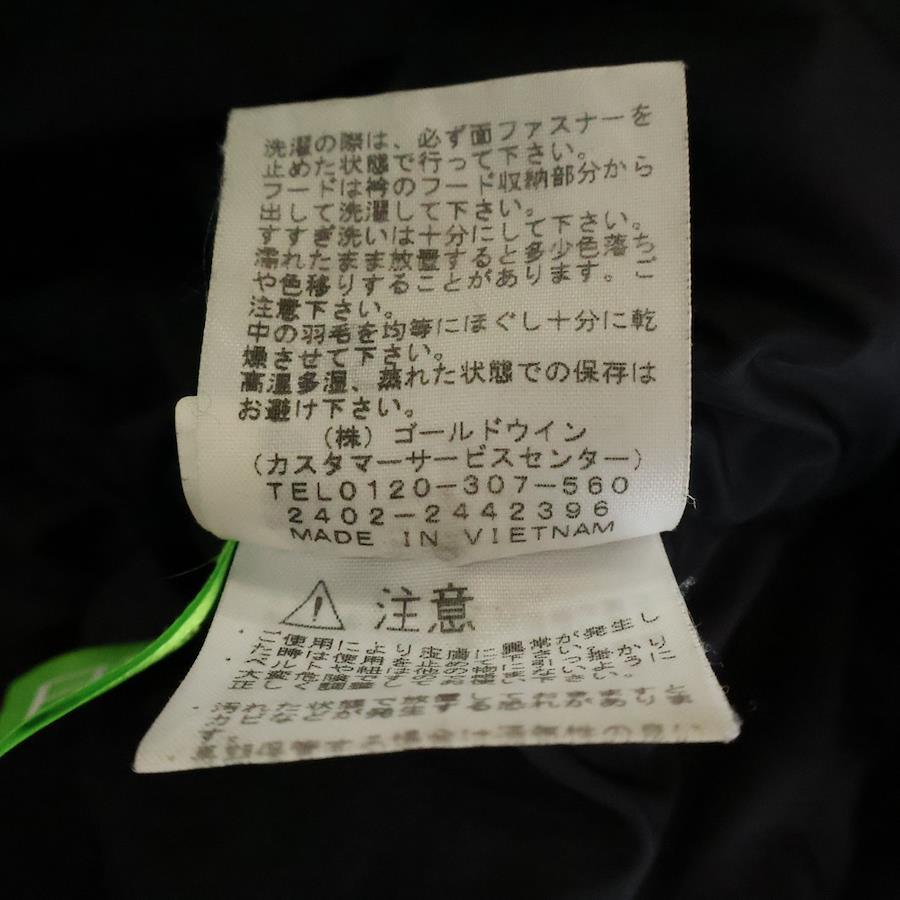 洗濯の際は、必ず面ファスナーを
止めた状態で行って下さい。
フードは衿のフード収納部分から
出して洗濯して下さい。
すすぎ洗いは十分にして下さい。
濡れたまま放置すると多少色落ち
や色移りすることがあります。ご
注意下さい。
中の羽毛を均等にほぐし十分に乾
燥させて下さい。
高温多湿、蒸れた状態での保存は
お避け下さい。
(株) ゴールドウイン
(カスタマーサービスセンター)
TEL0120-307-560
2402-2442396
MADE IN VIETNAM
注意
ご使用により皮膚に異常が発生し
・汚れた状態で放置しておきますと
カビなどが発生する恐れがありま
す。